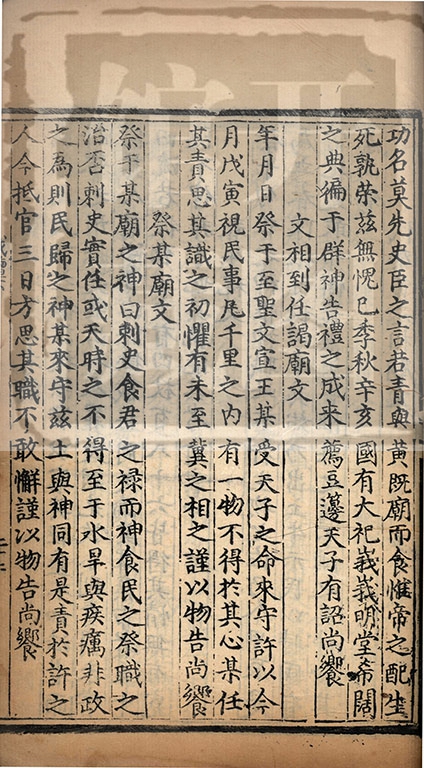 功名莫先史臣之言若青與黃既廟而食惟帝之配生
死孰榮茲無愧巳季秋辛亥國有大祀峩峩明堂希闊
之典徧于群神告禮之成来薦豆邊天子有詔尚饗
文相到任謁廟文
年月日祭于至聖文宣王某受天子之命來守許以今
月戊寅視民事凡千里之内有一物不得於其心某任
其責思其識之初懼有未至冀之相之謹以物告尚饗
祭某廟文
祭于某廟之神曰刺史食君之禄而神食民之祭職之
治否刺史實任或天時之不得至于水旱與疾癘非政
之為則民歸之神某來守兹土與神同有是責於許之
人今抵官三日方思其職不敢懈謹以物告尚饗